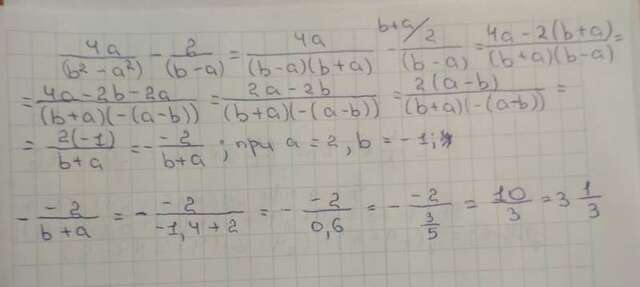 4a/(b² - a²) - 2/(b - a) = 4a/((b - a)(b + a)) - b+a/ 2/(b - a) = (4a - 2(b + a))/((b + a)(b - a)) =
= (4a - 2b - 2a)/((b + a)(-(a - b))) = (2a - 2b)/((b + a)(-(a - b))) = 2(a - b)/((b + a)(-(a - b))) =
= 2(-1)/(b + a) = - -2/(b + a) ; при a = 2, b = -1,4
- -2/(b + a) = - -2/(-1,4 + 2) = - -2/0,6 = - -2/(3/5) = 10/3 = 3 1/3